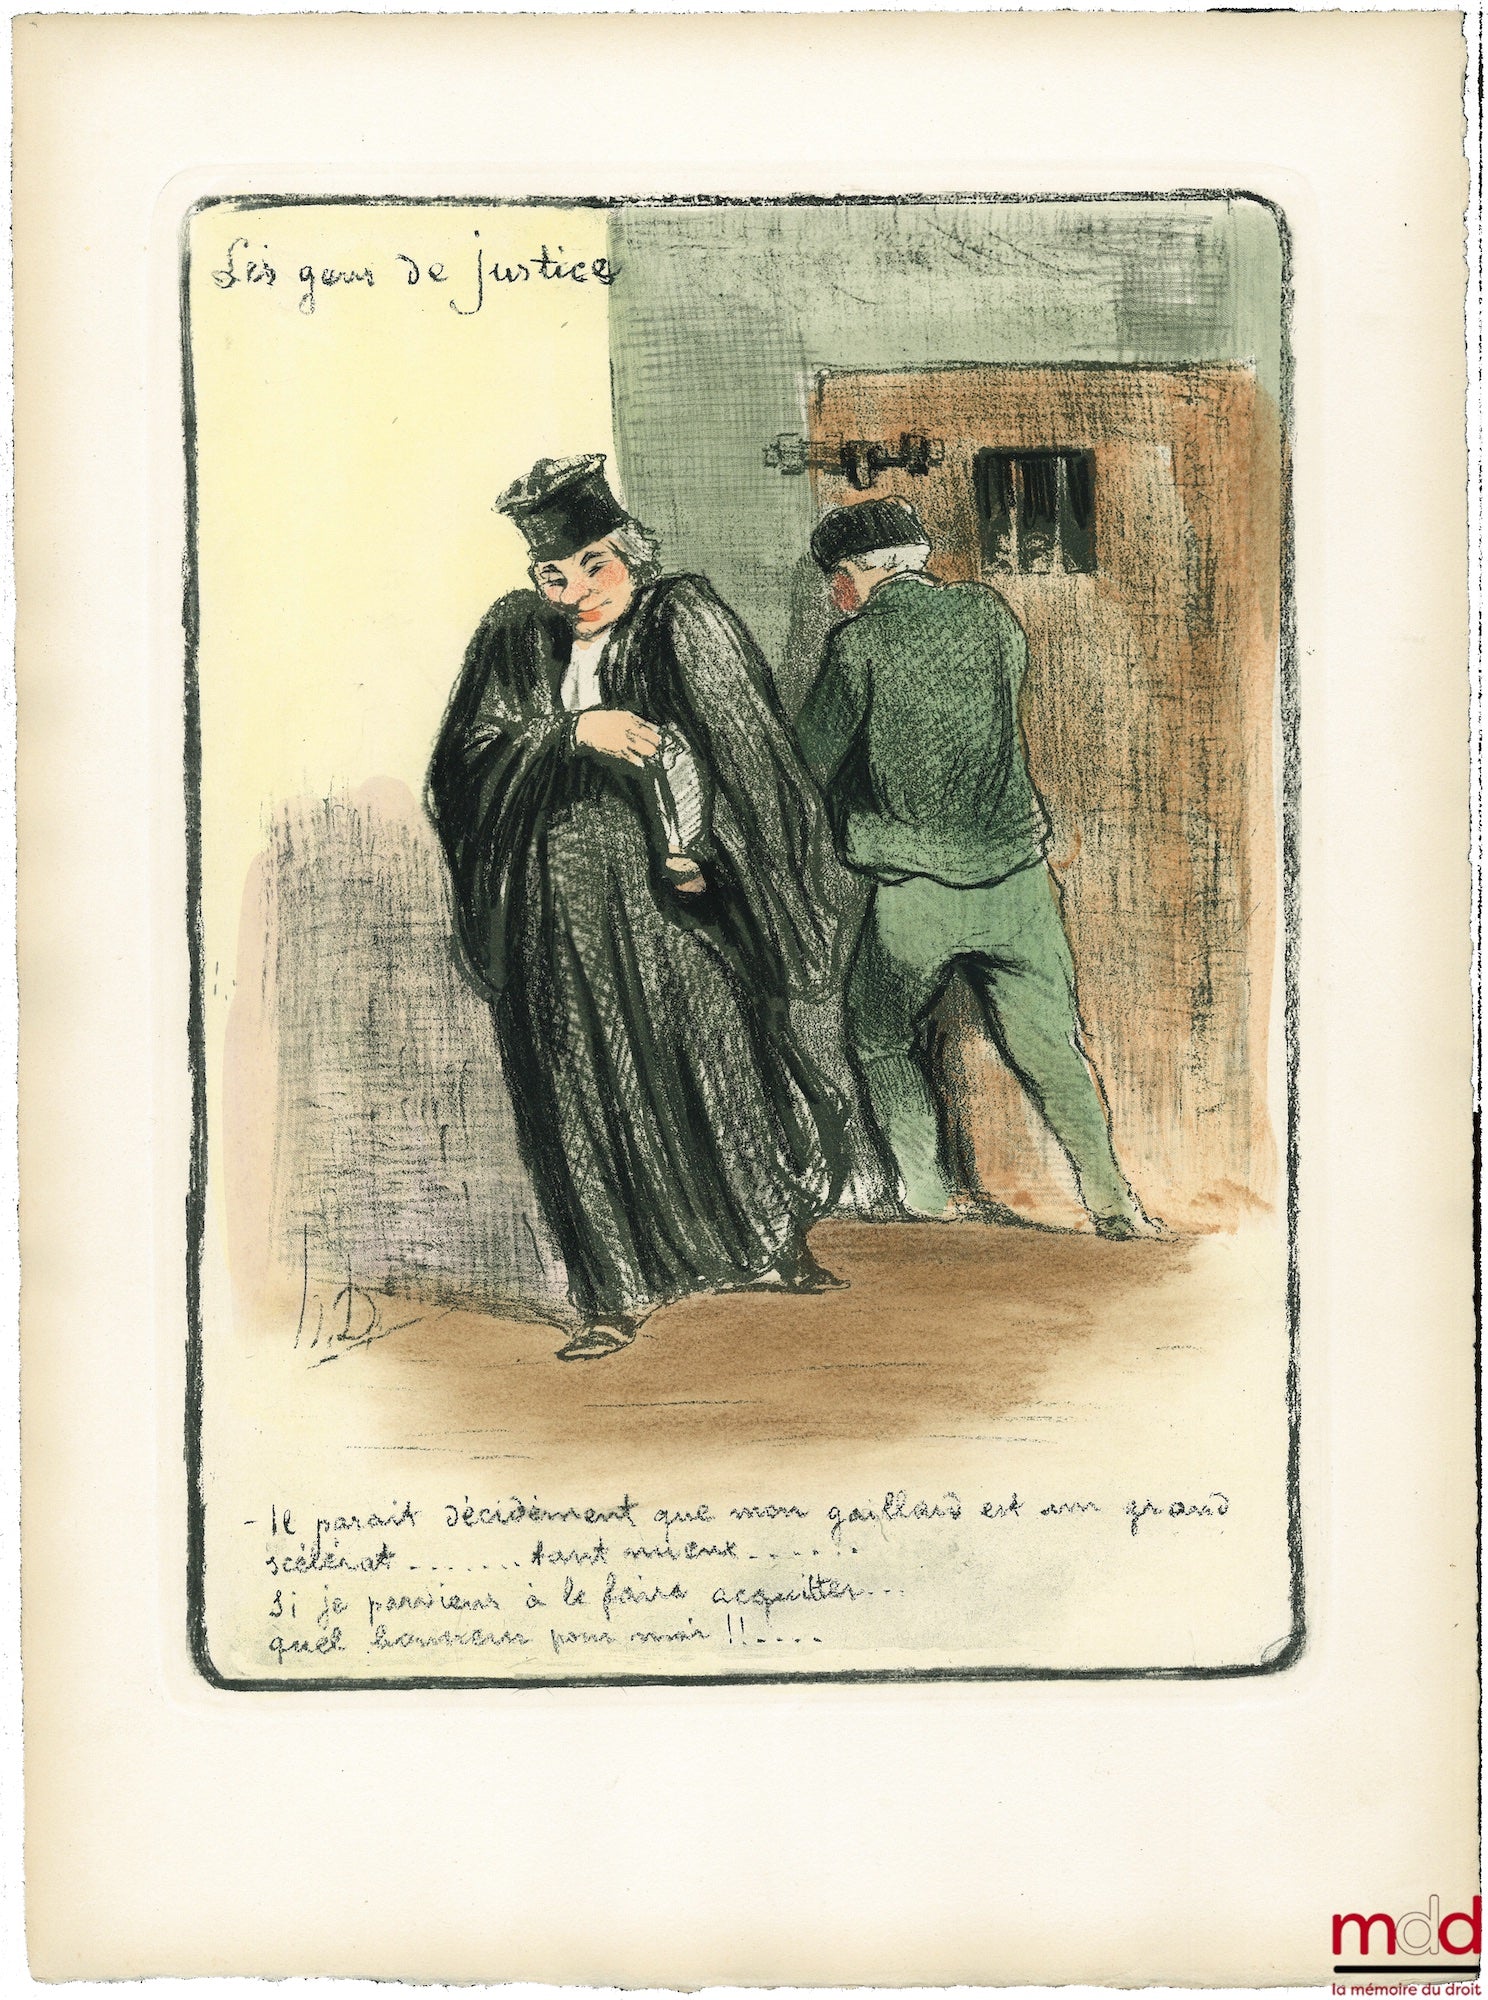 Les gens de justice
h.D.
- Il parait décidément que mon gaillard est un grand
scélérat.......tant mieux......
Si je parviens à le faire acquitter...
quel honneur pour moi !!....
mdd
la mémoire du droit